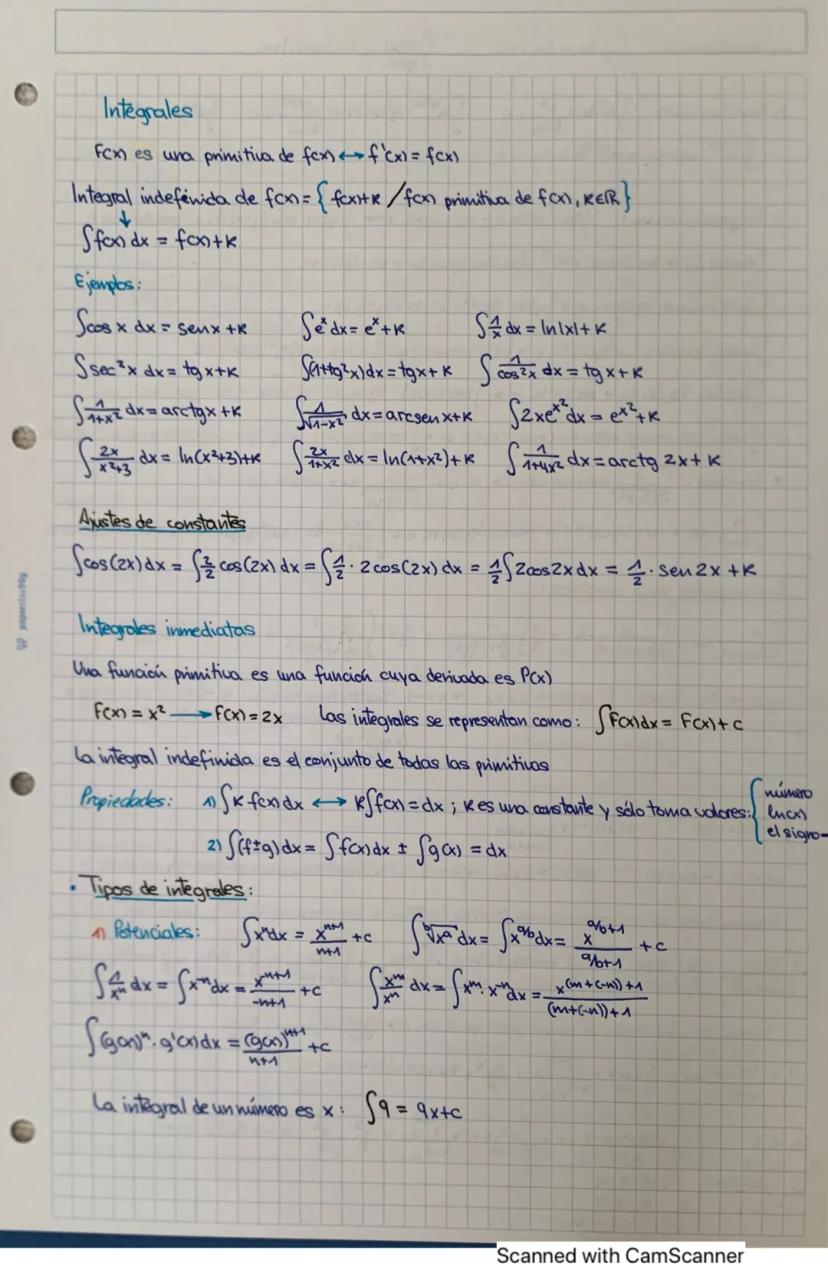 Integrales
F(x) es una primitiva de f(x) ↔ f'(x) = f(x)
Integral indefinida de f(x) = { f(x)+K / f(x) primitiva de f(x), K∈ℝ }
↓
∫f(x) dx = f(x)+K
Ejemplos:
∫cos x dx = senx +K ∫eˣ dx = eˣ+K ∫1/x dx = ln|x|+K
∫sec²x dx = tg x+K ∫(1+tg²x)dx = tgx+K ∫1/cos²x dx = tg x+K
∫1/(1+x²) dx = arctgx +K ∫1/√(1-x²) dx = arcsen x+K ∫2xe^(x²) dx = e^(x²)+K
∫2x/(x²+3) dx = ln(x²+3)+K ∫2x/(1+x²) dx = ln(1+x²)+K ∫1/(1+4x²) dx = arctg 2x + K
Ajustes de constantes
∫cos(2x) dx = ∫2/2 cos(2x) dx = ∫1/2 · 2cos(2x) dx = 1/2 ∫2cos2x dx = 1/2 · sen 2x + K
Integrales inmediatas
Una función primitiva es una función cuya derivada es P(x)
F(x) = x² → F(x) = 2x Las integrales se representan como: ∫F(x)dx = F(x)+c
La integral indefinida es el conjunto de todas las primitivas
Propiedades: 1) ∫K f(x) dx ↔ K∫f(x) = dx ; K es una constante y sólo toma valores: { número
ln(x)
el signo -
2) ∫(f±g) dx = ∫f(x) dx ± ∫g(x) = dx
• Tipos de integrales:
1) Potenciales: ∫xⁿdx = x^(n+1)/(n+1) + c ∫ᵇ√xᵃ dx = ∫x^(a/b) dx = x^(a/b+1)/(a/b+1) + c
∫1/xⁿ dx = ∫x⁻ⁿ dx = x^(-n+1)/(-n+1) + c ∫xᵐ/xⁿ dx = ∫xᵐ · x⁻ⁿ dx = x^((m+(-n))+1)/((m+(-n))+1)
∫(g(x))ⁿ · g'(x) dx = (g(x))^(n+1)/(n+1) + c
La integral de un número es x: ∫9 = 9x+c
Scanned with CamScanner